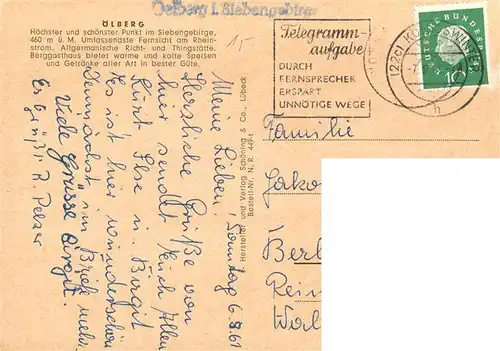 ÖLBERG
Höchster und schönster Punkt im Siebengebirge,
460 m ü. M. Umfassendste Fernsicht am Rhein-
strom. Altgermanische Richt- und Thingstätte.
Berggasthaus bietet warme und kalte Speisen
und Getränke aller Art in bester Güte.
Oelberg i. Siebengebirge
15
Telegramm-
aufgabe
DURCH
FERNSPRECHER
ERSPART
UNNÖTIGE WEGE!
(22c) KÖNIGSWINTER
h
DEUTSCHE BUNDESPOST
10
Hersteller und Verlag Schöning & Co., Lübeck
Bestell-Nr. N. R. 449-1
Sonntag 6.8.61
Meine Lieben!
Herzliche Grüße von
hier sendet Euch Allen
Kurt Else u. Birgit
Es ist hier wunderschön
Demnächst im Brief mehr.
Viele Grüße Birgit.
Es grüßt R. Pelzer
Familie
Jako
Berl
Rein
Wal